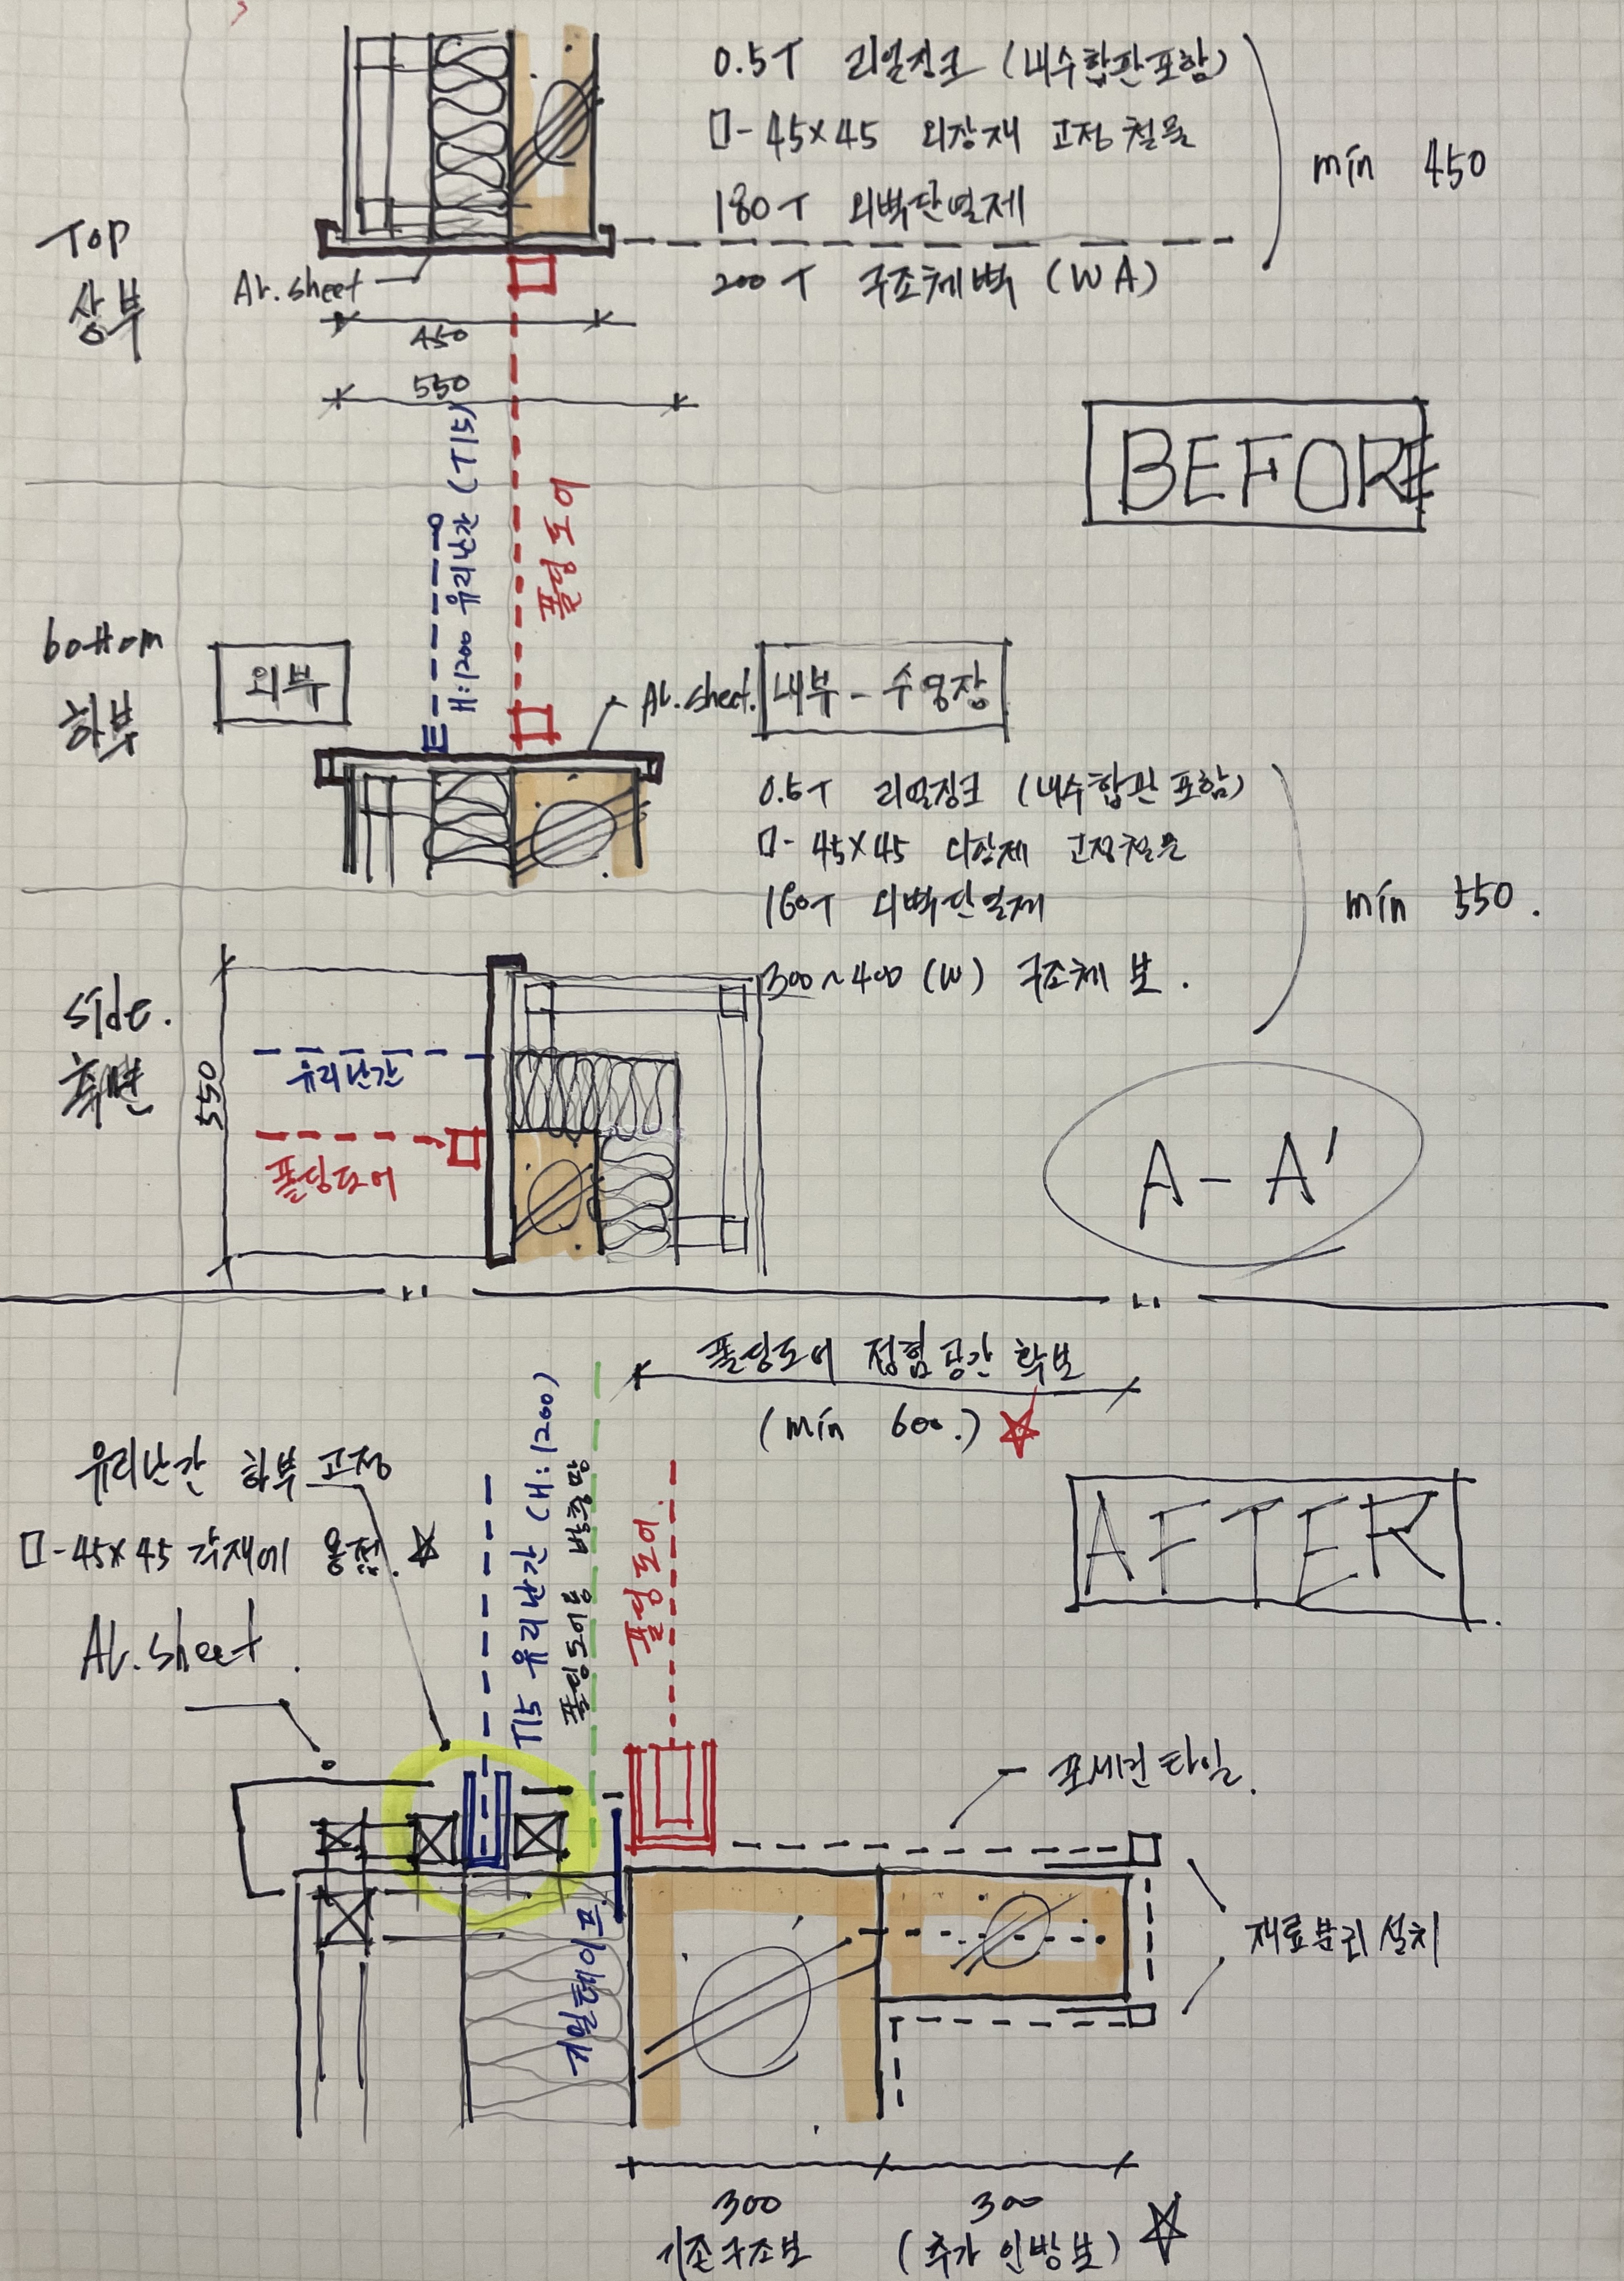 0.5T 리얼징크 (내수합판포함)
ㅁ-45×45 외장재 고정철물
180T 외벽단열제
200T 구조체벽 (WA)
min 450
TOP
상부
AL.sheet
450
550
BEFORE
H:1200 유리난간 (T15)
폴딩도어
bottom
하부
외부
AL.sheet.
내부 - 수영장
0.5T 리얼징크 (내수합판 포함)
ㅁ-45×45 고정철물
160T 외벽단열제
300~400 (W) 구조체 보.
min 550.
side.
측면
550
유리난간
폴딩도어
A-A'
폴딩도어 접힘공간 확보
(min 600.)
유리난간 하부 고정
ㅁ-45×45 각재에 용접.
AL.sheet.
T15 유리난간 (H:1200)
폴딩도어용 방충망
폴딩도어.
AFTER.
포세린타일.
기밀테이프
재료분리 설치
300
기존구조보
300
(추가 인방보)